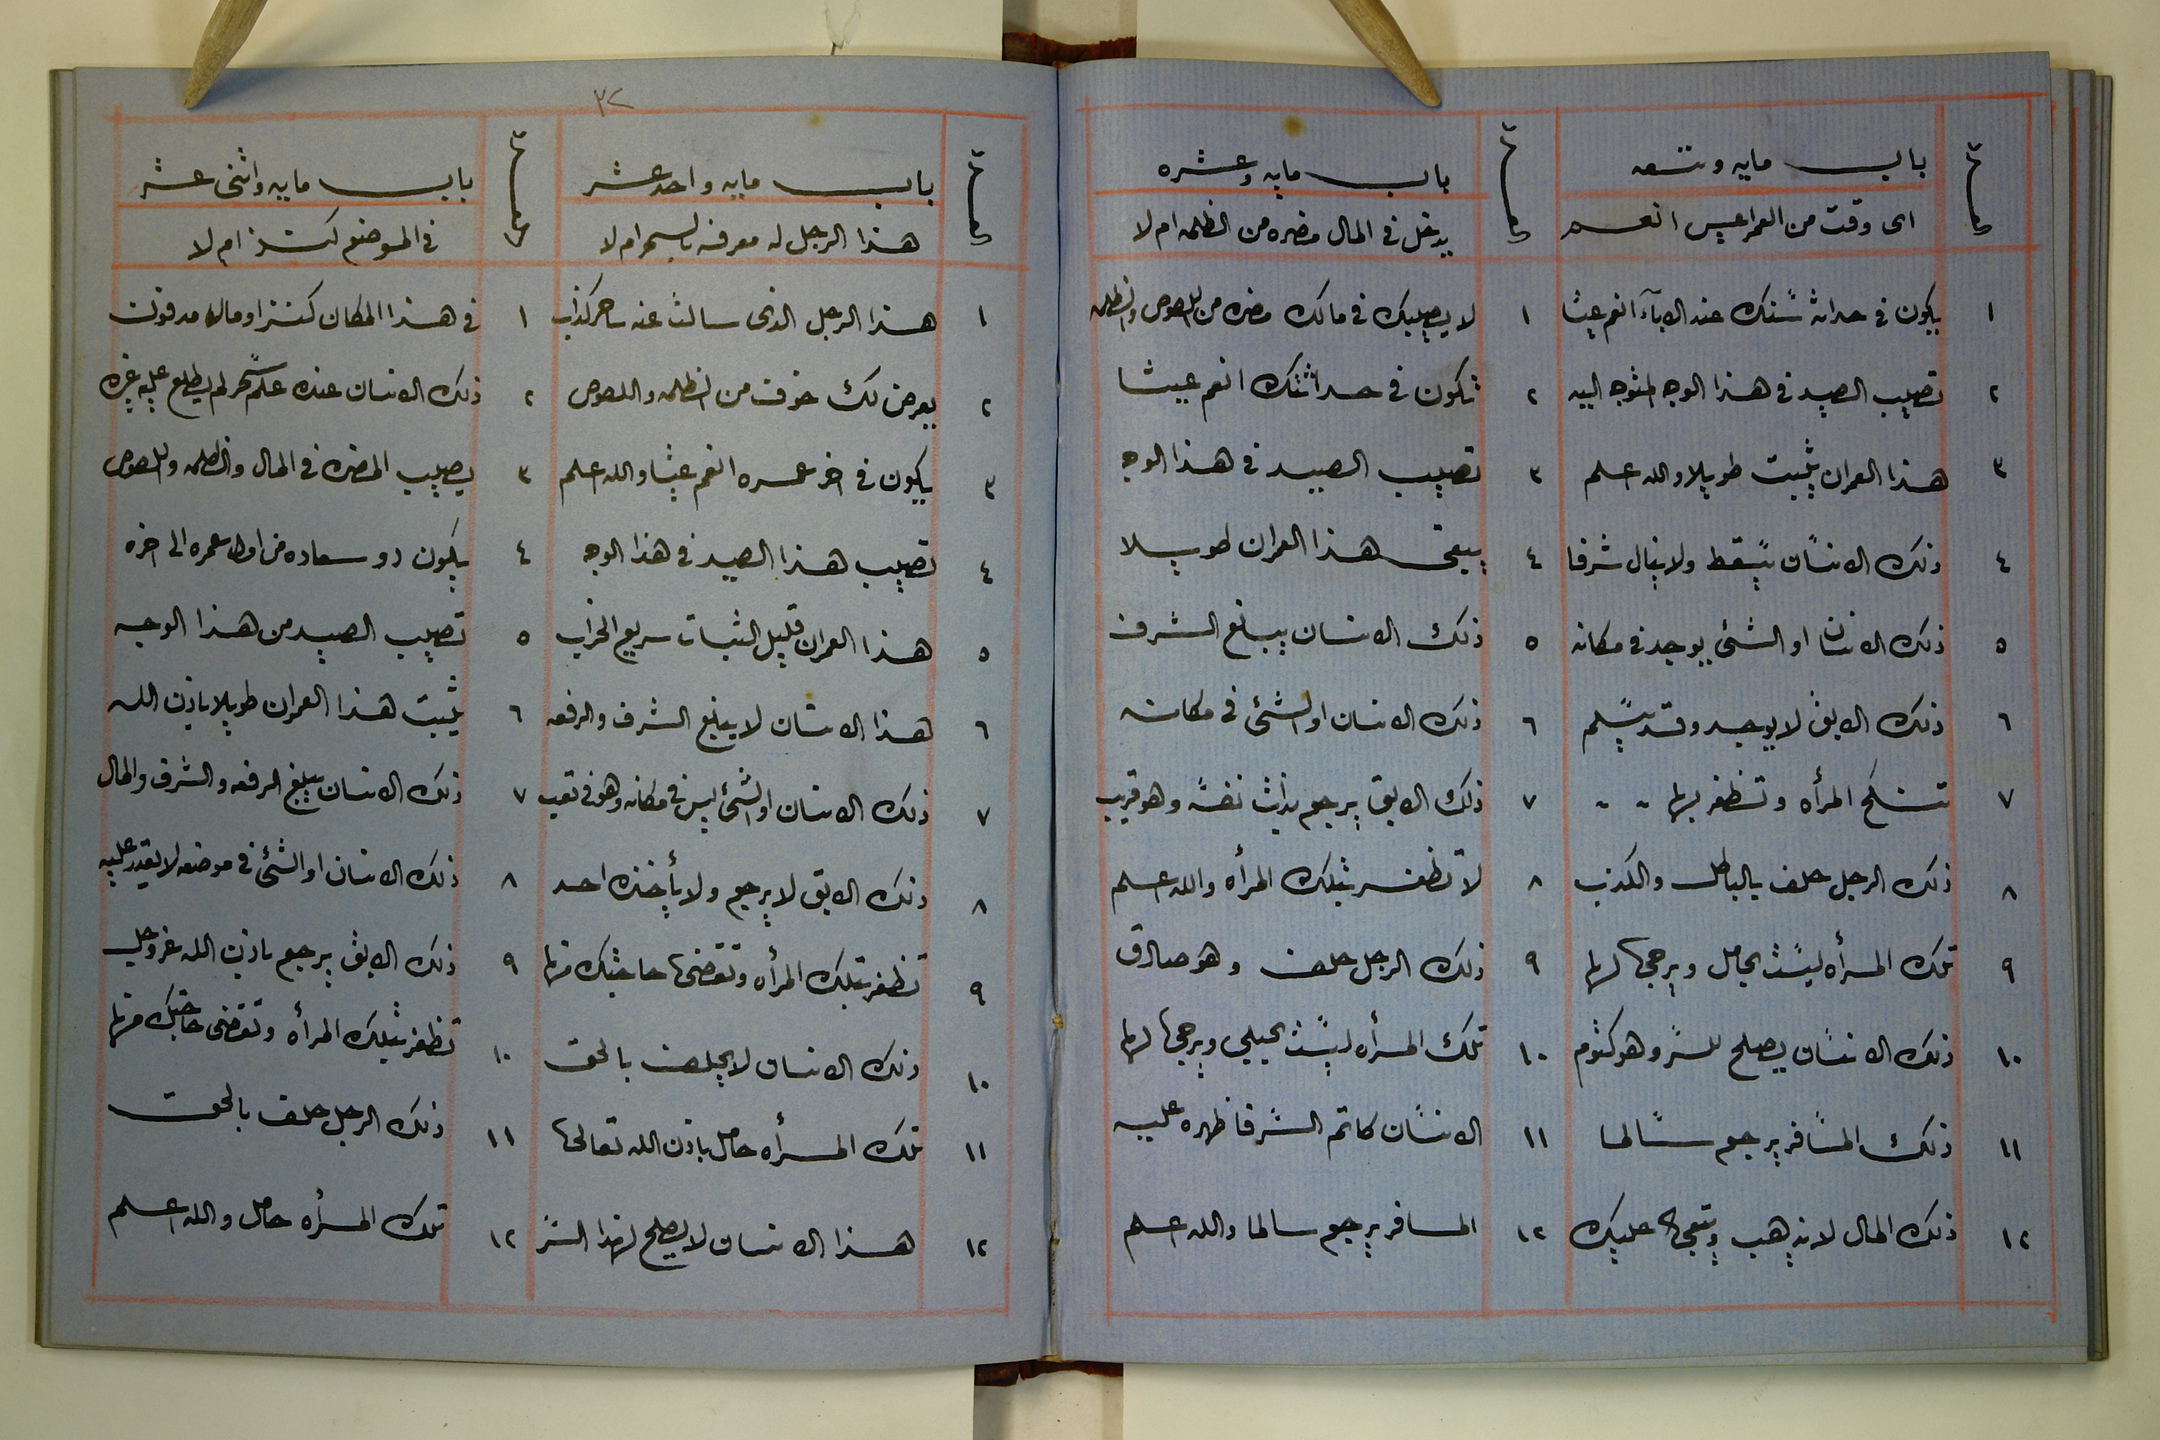 باب مايه وتسعه
اى وقت من العمر اعيس انعم
١ يكون فى حداثة سنك عند الاباء انعم عيشا
٢ تصيب الصيد فى هذا الوجه المتوجه اليه
٣ هذا العمران يثبت طويلا والله اعلم
٤ ذلك الانسان يسقط ولا ينال شرفا
٥ ذلك الانسان او الشئ يوجد فى مكانه
٦ ذلك الابق لا يوجد وقد يسلم
٧ تنكح المرأه وتظفر بها
٨ ذلك الرجل حلف بالباطل والكذب
٩ تلك المرأه ليست بحامل ويرجى لها
١٠ ذلك الانسان يصلح للسر وهو كتوم
١١ ذلك المسافر يرجع سالما
١٢ ذلك المال لا يذهب ويبقى عليك
باب مايه وعشره
يدخل فى المال مضره من الظلمه ام لا
١ لا يصيبك فى مالك مضره من اللصوص والظلمه
٢ تكون فى حداثتك انعم عيشا
٣ تصيب الصيد فى هذا الوجه
٤ يبقى هذا العمران طويلا
٥ ذلك الانسان يبلغ الشرف
٦ ذلك الانسان او الشئ فى مكانه
٧ ذلك الابق يرجع بذات نفسه وهو قريب
٨ لا تظفر بتلك المرأه والله اعلم
٩ ذلك الرجل حلف وهو صادق
١٠ تلك المرأه ليست بحبلى ويرجى لها
١١ الانسان كاتم السر فاظهره عليه
١٢ المسافر يرجع سالما والله اعلم
٣٢
باب مايه واحد عشر
هذا الرجل له معرفه بالسحر ام لا
١ هذا الرجل الذى سالت عنه ساحر كذاب
٢ يعرض لك خوف من الظلمه واللصوص
٣ يكون فى اخر عمره انعم عيشا والله اعلم
٤ تصيب هذا الصيد فى هذا الوجه
٥ هذا العمران قليل الثبات سريع الخراب
٦ هذا الانسان لا يبلغ الشرف والرفعه
٧ ذلك الانسان او الشئ ليس فى مكانه وهو فى تعب
٨ ذلك الابق لا يرجع ولا يأخذه احد
٩ تظفر بتلك المرأه وتقضى حاجتك منها
١٠ ذلك الانسان لا يحلف بالحق
١١ تلك المرأه حامل باذن الله تعالى
١٢ هذا الانسان لا يصلح لهذا السر
باب مايه واثنى عشر
فى الموضع كنز ام لا
١ فى هذا المكان كنز او مال مدفون
٢ ذلك الانسان عنده علم سحر لم يطلع عليه غيره
٣ يصيب المضره فى المال والظلمه واللصوص
٤ يكون ذو سعاده من اول عمره الى اخره
٥ تصيب الصيد من هذا الوجه
٦ يثبت هذا العمران طويلا باذن الله
٧ ذلك الانسان يبلغ الرفعه والشرف والمال
٨ ذلك الانسان او الشئ فى موضعه لا يقدر عليه
٩ ذلك الابق يرجع باذن الله عز وجل
١٠ تظفر بتلك المرأه وتقضى حاجتك منها
١١ ذلك الرجل حلف بالحق
١٢ تلك المرأه حامل والله اعلم